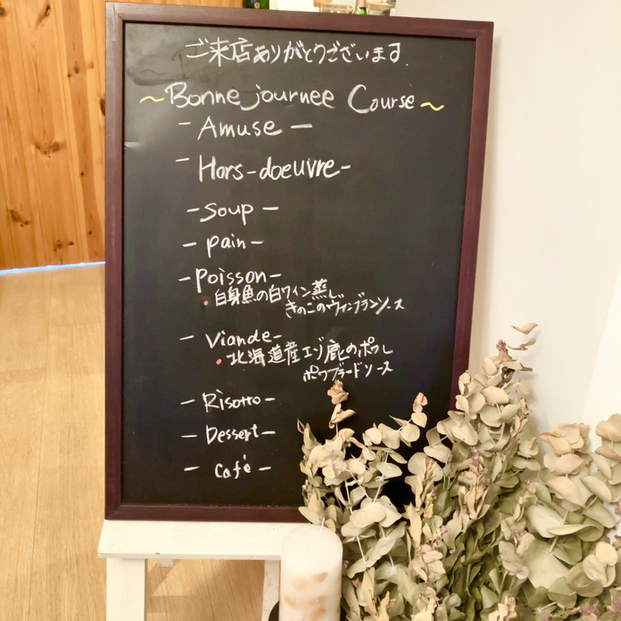 ご来店ありがとうございます.
~Bonne journee Course~
- Amuse -
- Hors-doeuvre-
- soup -
- pain -
- poisson -
• 白身魚の白ワイン蒸し
きのこのヴァンブランソース
- Viande -
• 北海道産エゾ鹿のポワレ
ポワブラードソース
- Risotto -
- Dessert -
- Café -